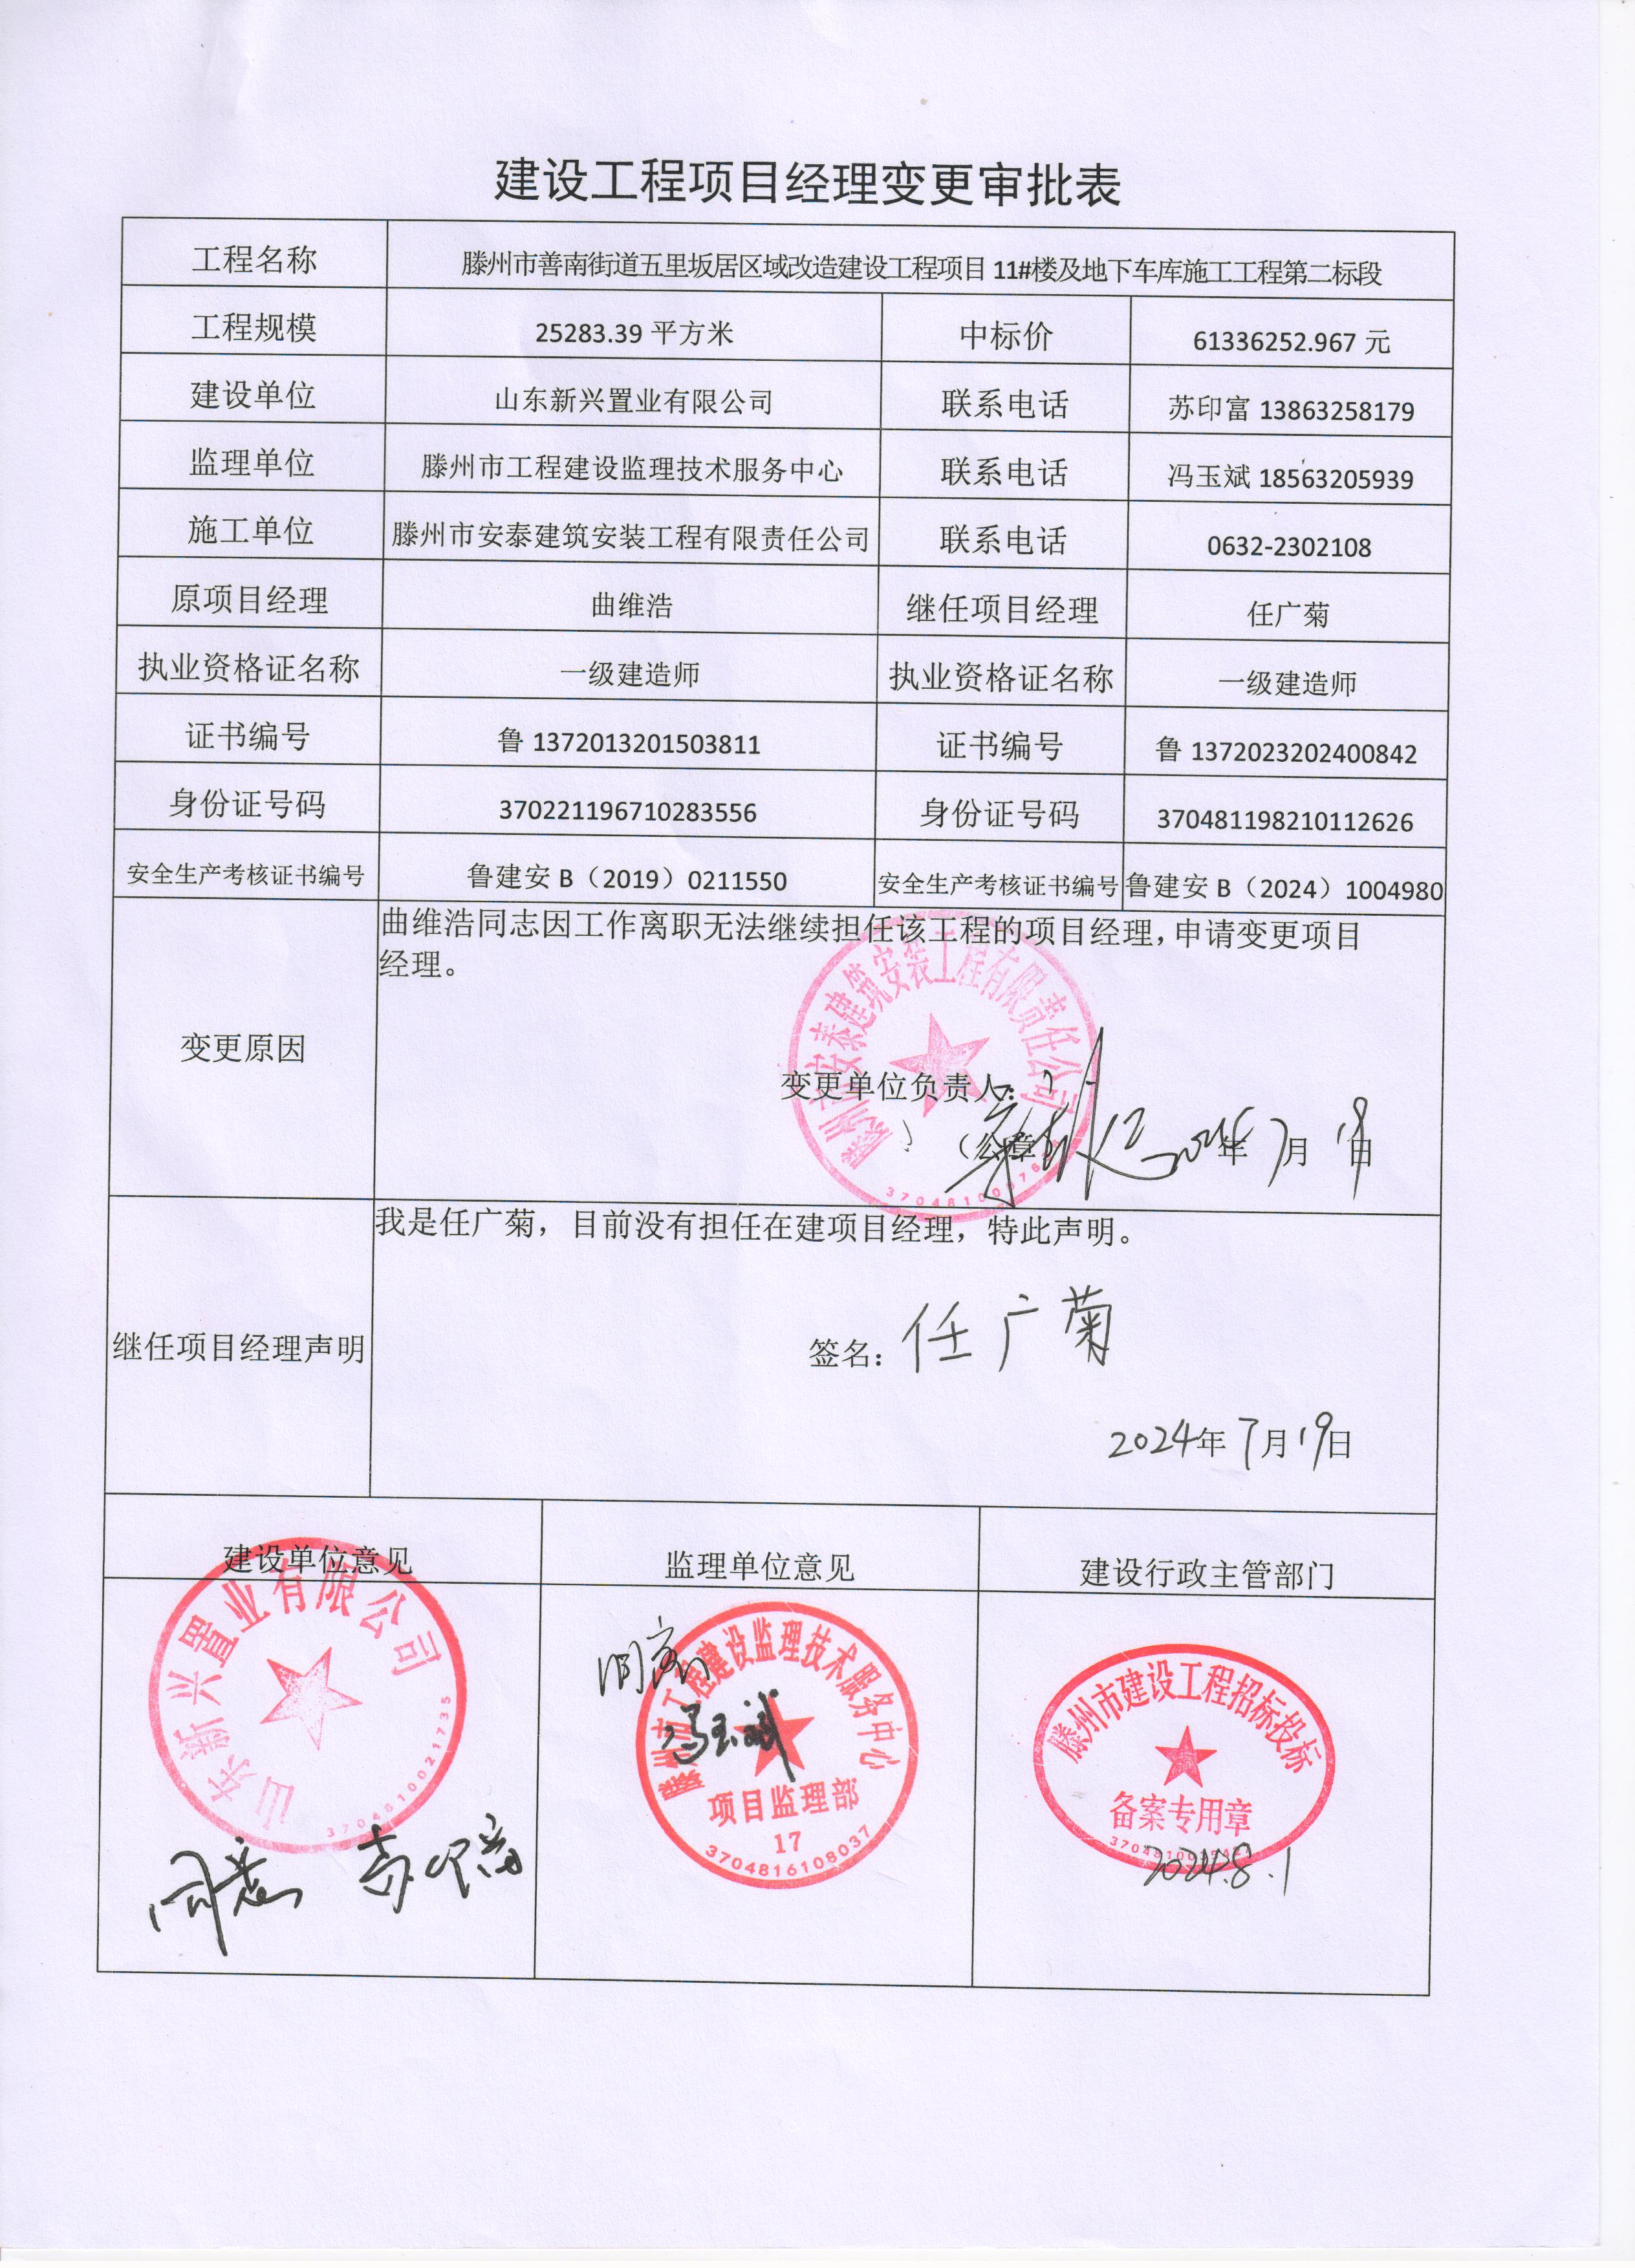 建设工程项目经理变更审批表
工程名称 滕州市善南街道五里坂居区域改造建设工程项目 11#楼及地下车库施工工程第二标段
工程规模 25283.39 平方米 中标价 61336252.967 元
建设单位 山东新兴置业有限公司 联系电话 苏印富 13863258179
监理单位 滕州市工程建设监理技术服务中心 联系电话 冯玉斌 18563205939
施工单位 滕州市安泰建筑安装工程有限责任公司 联系电话 0632-2302108
原项目经理 曲维浩 继任项目经理 任广菊
执业资格证名称 一级建造师 执业资格证名称 一级建造师
证书编号 鲁 1372013201503811 证书编号 鲁 1372023202400842
身份证号码 370221196710283556 身份证号码 370481198210112626
安全生产考核证书编号 鲁建安 B（2019）0211550 安全生产考核证书编号 鲁建安 B（2024）1004980
曲维浩同志因工作离职无法继续担任该工程的项目经理，申请变更项目
经理。
变更原因
滕州市安泰建筑安装工程有限责任公司
变更单位负责人：
（公章） 年 7 月 19 日
我是任广菊，目前没有担任在建项目经理，特此声明。
继任项目经理声明
签名：任广菊
2024年 7 月 19 日
建设单位意见 监理单位意见 建设行政主管部门
山东新兴置业有限公司
3704810021735
同意 苏印富
同意
冯玉斌
滕州市工程建设监理技术服务中心
项目监理部
17
3704816108037
滕州市建设工程招标投标
备案专用章
2024.8.1